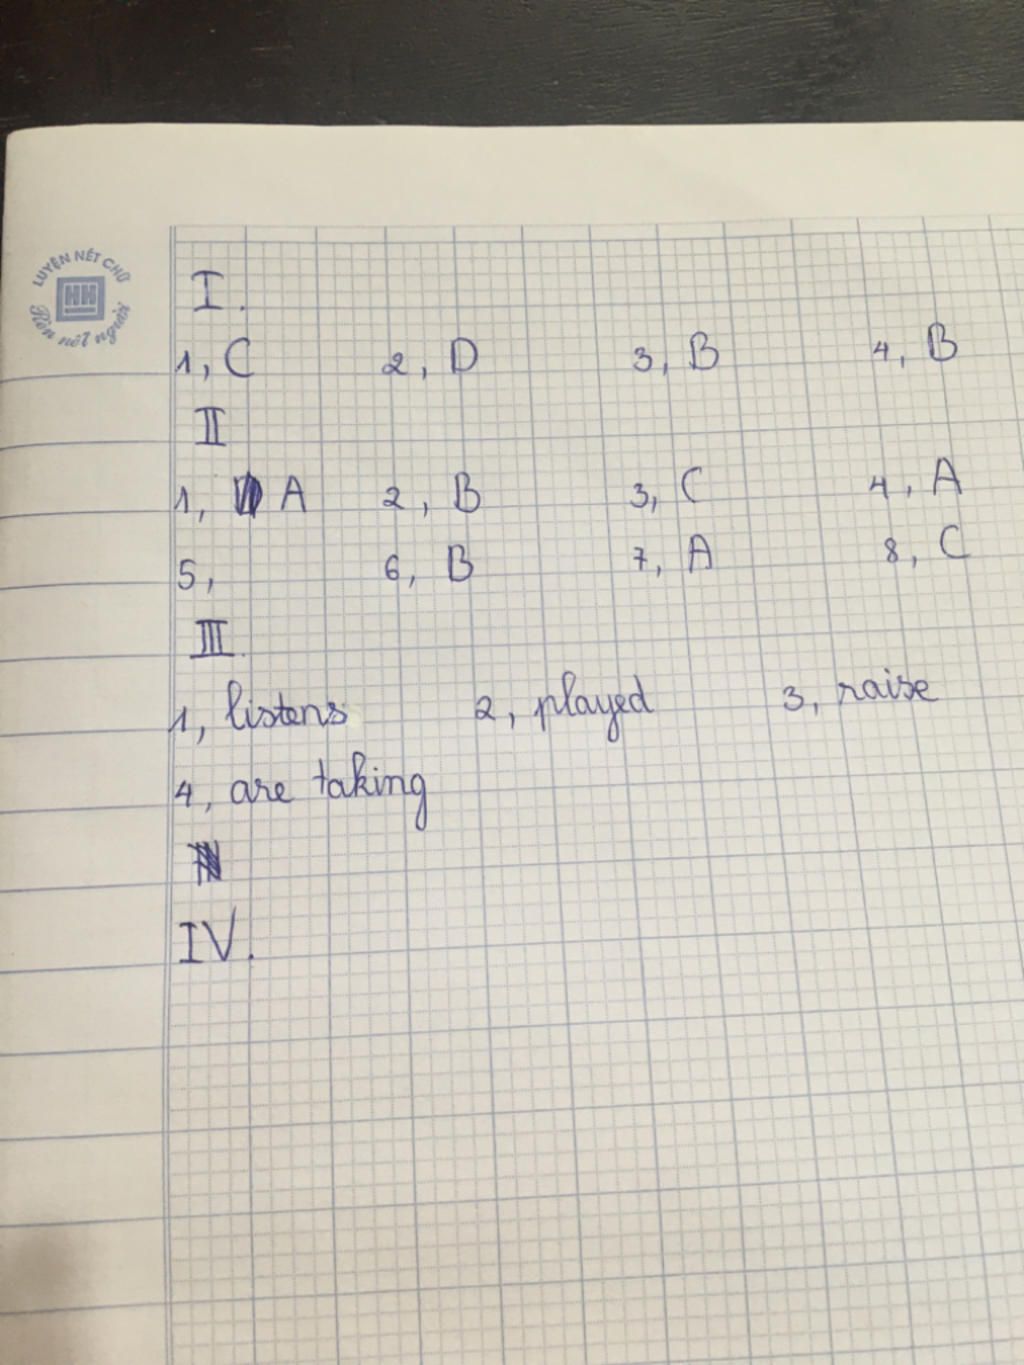 LUYỆN NÉT CHỮ
HH
Rèn nết người
I.
1, C 2, D 3, B 4, B
II
1, A 2, B 3, C 4, A
5, 6, B 7, A 8, C
III.
1, listens 2, played 3, raise
4, are taking
IV.